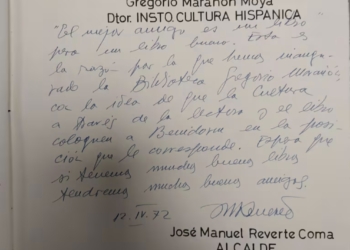 Gregorio Marañon Moya
Dtor. INSTO. CULTURA HISPANICA
"El mejor amigo es un libro
pero un libro bueno. Esta es
la razón por la que hemos inaugu-
rado la Biblioteca Gregorio Marañón
con la idea de que la Cultura
a través de la lectura y el libro
coloquen a Benidorm en la posi-
ción que le corresponde. Espero que
si tenemos muchos buenos libros
tendremos muchos buenos amigos.
12. IV. 72
José Manuel Reverte Coma
ALCALDE